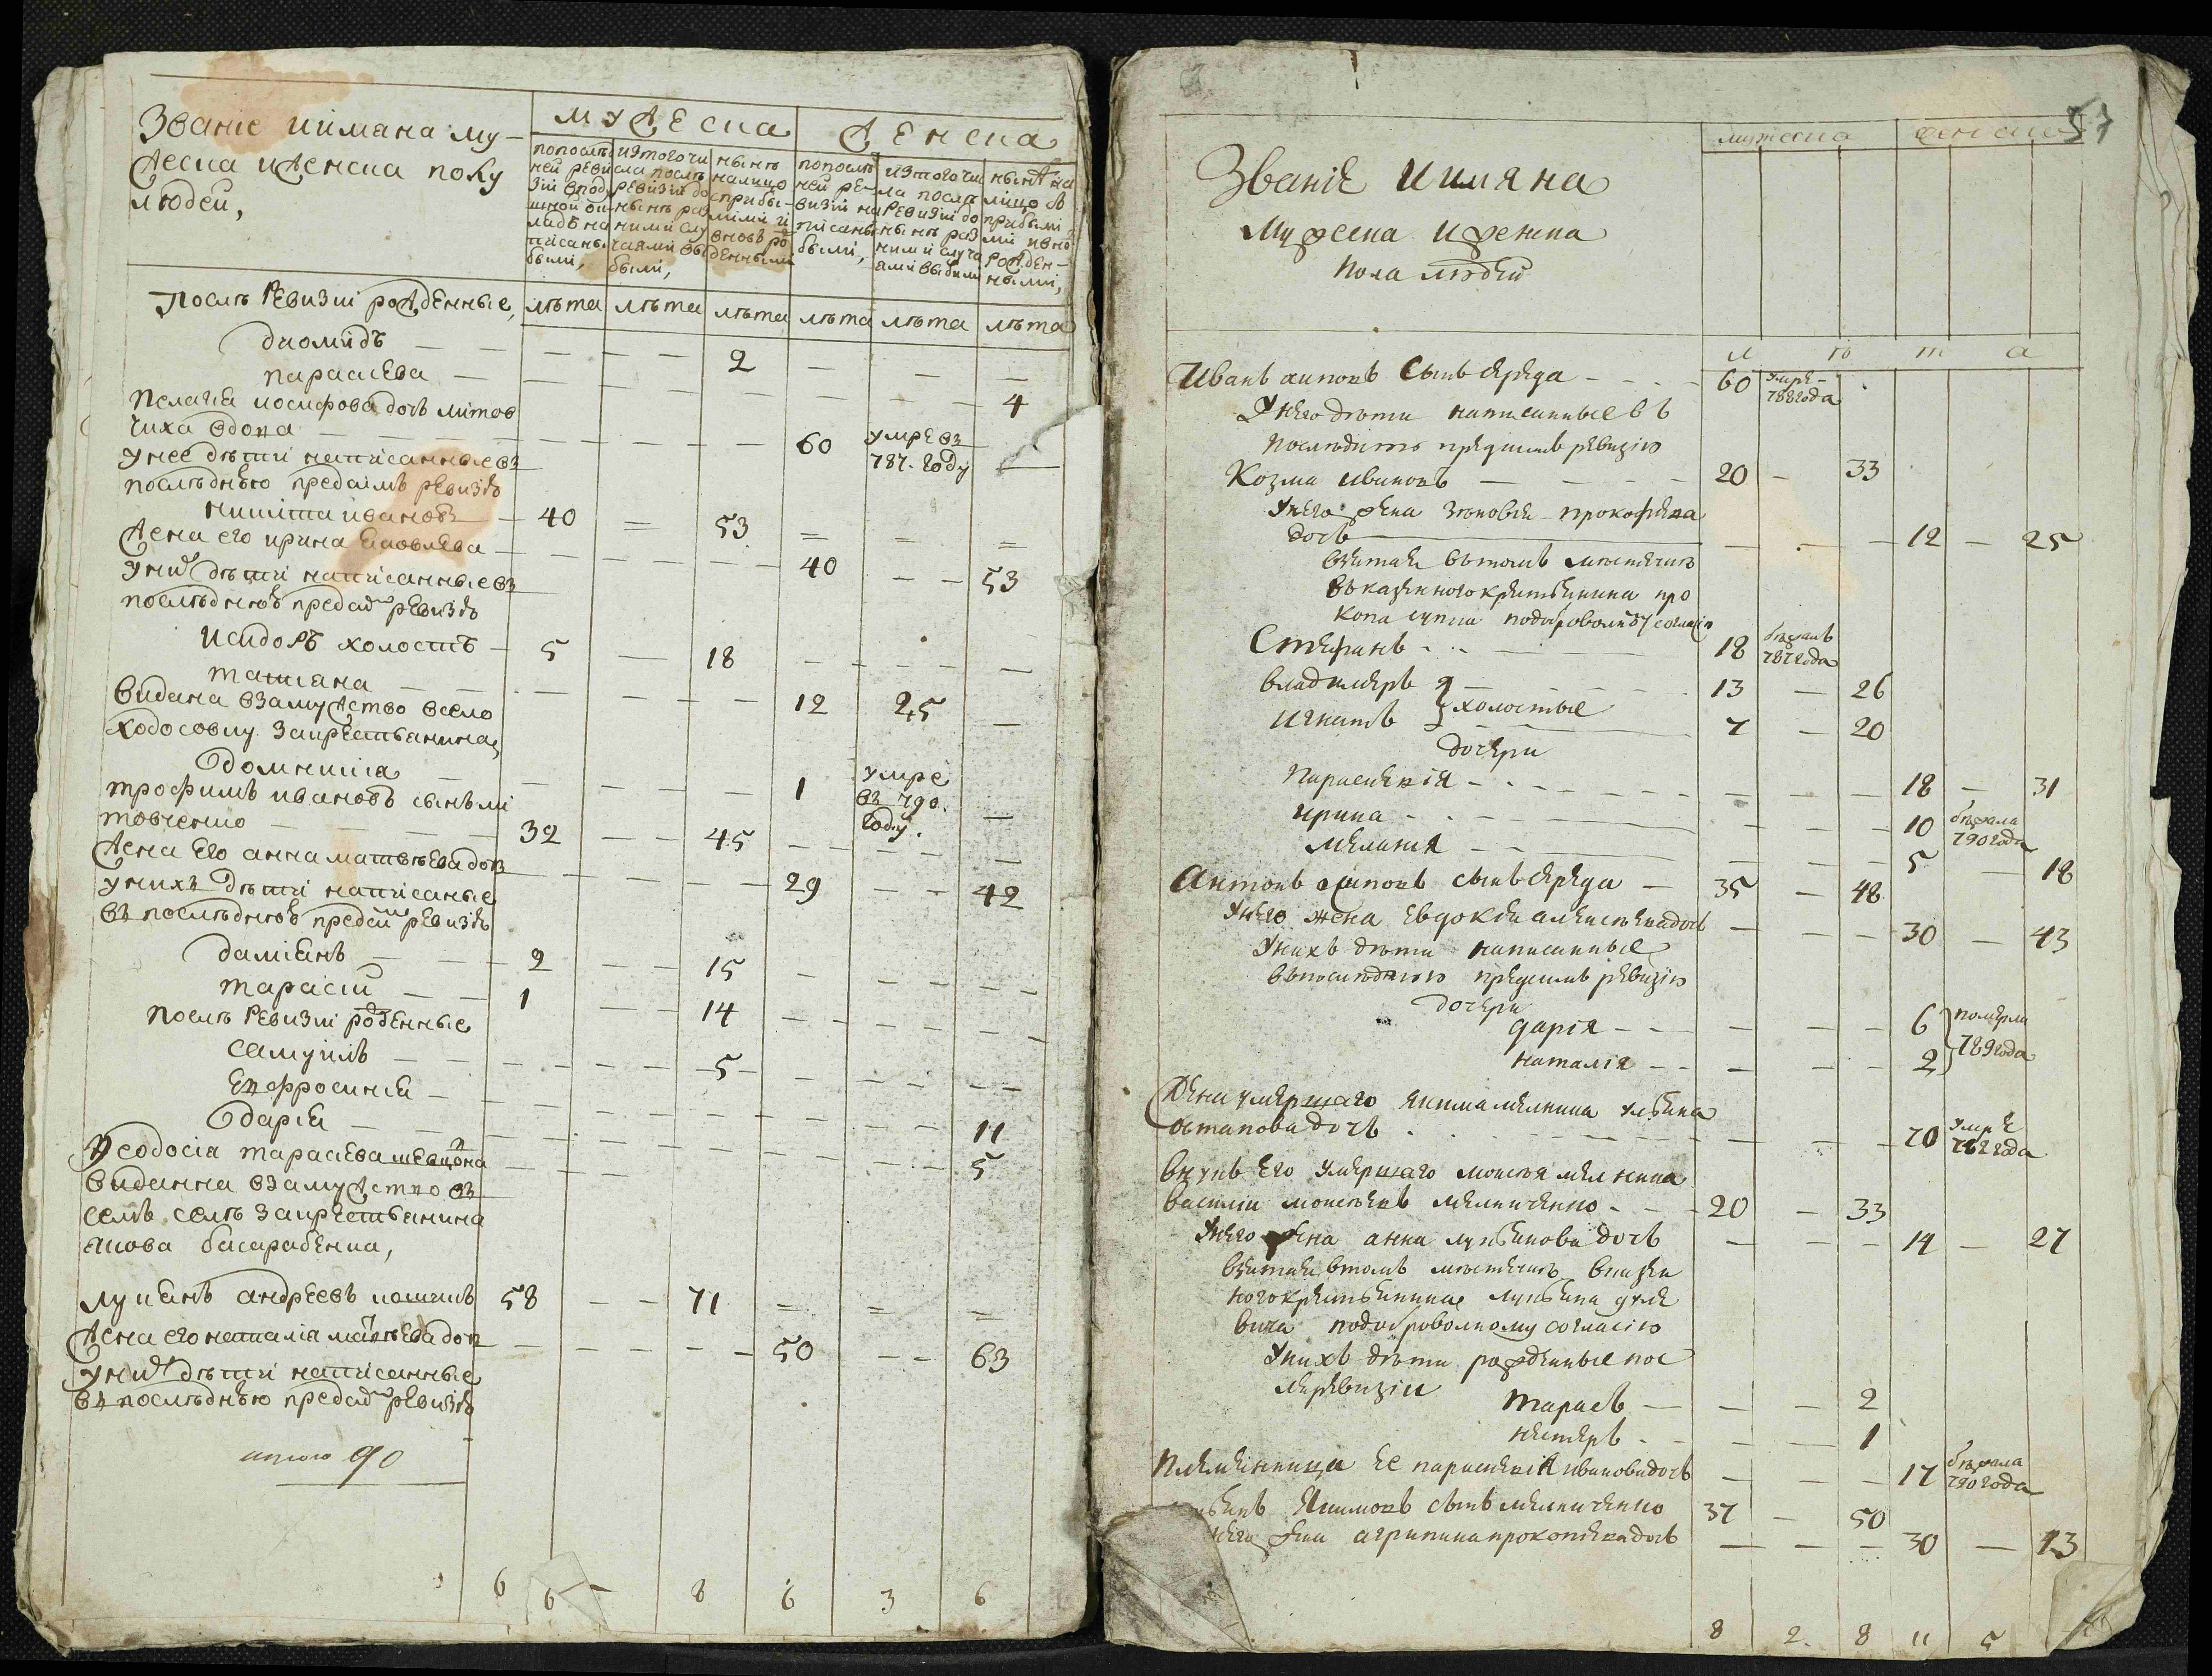 Званіе иимяна му-
жеска иженска полу
людей,
мужеска
женска
попослѣд
ней реви
зіи в под
писаны
были,
изтогочи
сла послѣ
ревизіи до
нынѣ раз
ними слу
чаями вы
были,
нынѣ
налицо
сприбы-
лыми и
вновь ро
жденными
попослѣд
ней ре-
визіи на
писаны
были,
изтогочис
ла послѣ
ревизіи до
нынѣ раз
ними случа
ями выбыли
нынѣ на
лицо съ
прибылы
ми ивно
рожден-
ными,
Послѣ ревизіи рожденные,
лѣта лѣта лѣта лѣта лѣта лѣта
диомидъ 2
параскева 4
Пелагея иосифова дочь литов
чиха вдова 60 умре въ 787. году
унее дѣти написанные въ
послѣднюю предсимъ ревизію
никита ивановъ 40 53
Жена его ирина яковлева 40 53
уних дѣти написанные въ
послѣднюю предсим ревизію
исидоръ холостъ 5 18
татиана 12 25
видана взамужство всело
ходосовку закрестьянина,
домникія 1 умре въ 790. году.
трофимъ ивановъ сынъ ли
товченко 32 45
Жена его анна матвѣева доч 29 42
унихъ дѣти написаные
въ послѣднюю предсим ревизію
даміянъ 2 15
тарасій 1 14
послѣ ревизіи рожденные
самуилъ 5
Евфросинія 11
дарія 5
Феодосія тарасіева шевцова
виданна взамужство въ
семъ селѣ закрестьянина
якова басарабенка,
лукьянъ андреевъ 58 71
Жена его наталія матвѣева доч 50 63
уних дѣти написанные
въ послѣднюю предсим ревизію
итого 90
6 6 8 6 3 6
57
мужеска женска
Званіе иимяна
Мужеска иженска
пола людей
л ѣ т а
Иванъ антоновъ сынъ середа 60 умре 788 года
Унего дѣти написанные въ
последнюю предсимъ ревизію
Козма ивановъ 20 33
Унего жена зѣновея прокофьева
дочь 12 25
взятая втомъ мѣстечкѣ
указенного крестьянина про
копа супка подобровольному согласію
Стефанъ 18 бежалъ 787 года
владимеръ 13 26
холостые
игнатъ 7 20
дочери
Параскевія 18 31
ирина 10 бежала 790 года
меланія 5 18
Антонъ антоновъ сынъ середа 35 48
Унего жена евдокея алексѣева дочь 30 43
Унихъ дѣти написанные
впоследнюю предсимъ ревизію
дочери
дарія 6
наталія 2
померли 789 года
Жена умершаго якима мелника улбяна
остапова дочь 70 умре 787 года
внукъ его умершаго моисея мелника
василій моисѣевъ мелниченко 20 33
Унего жена анна лукьянова дочь 14 27
взятая втомъ мѣстечкѣ вказен
ного крестьянина лукьяна
подобровольному согласію
Унихъ дѣти рожденные пос
леревизіи тарасъ 2
нестеръ 1
Племѣнница ее параскевія иванова дочь 17 бежала 790 года
якимовъ сынъ мелниченко 37 50
него жена агрипина прокопіева дочь 30 43
8 2. 8 11 5